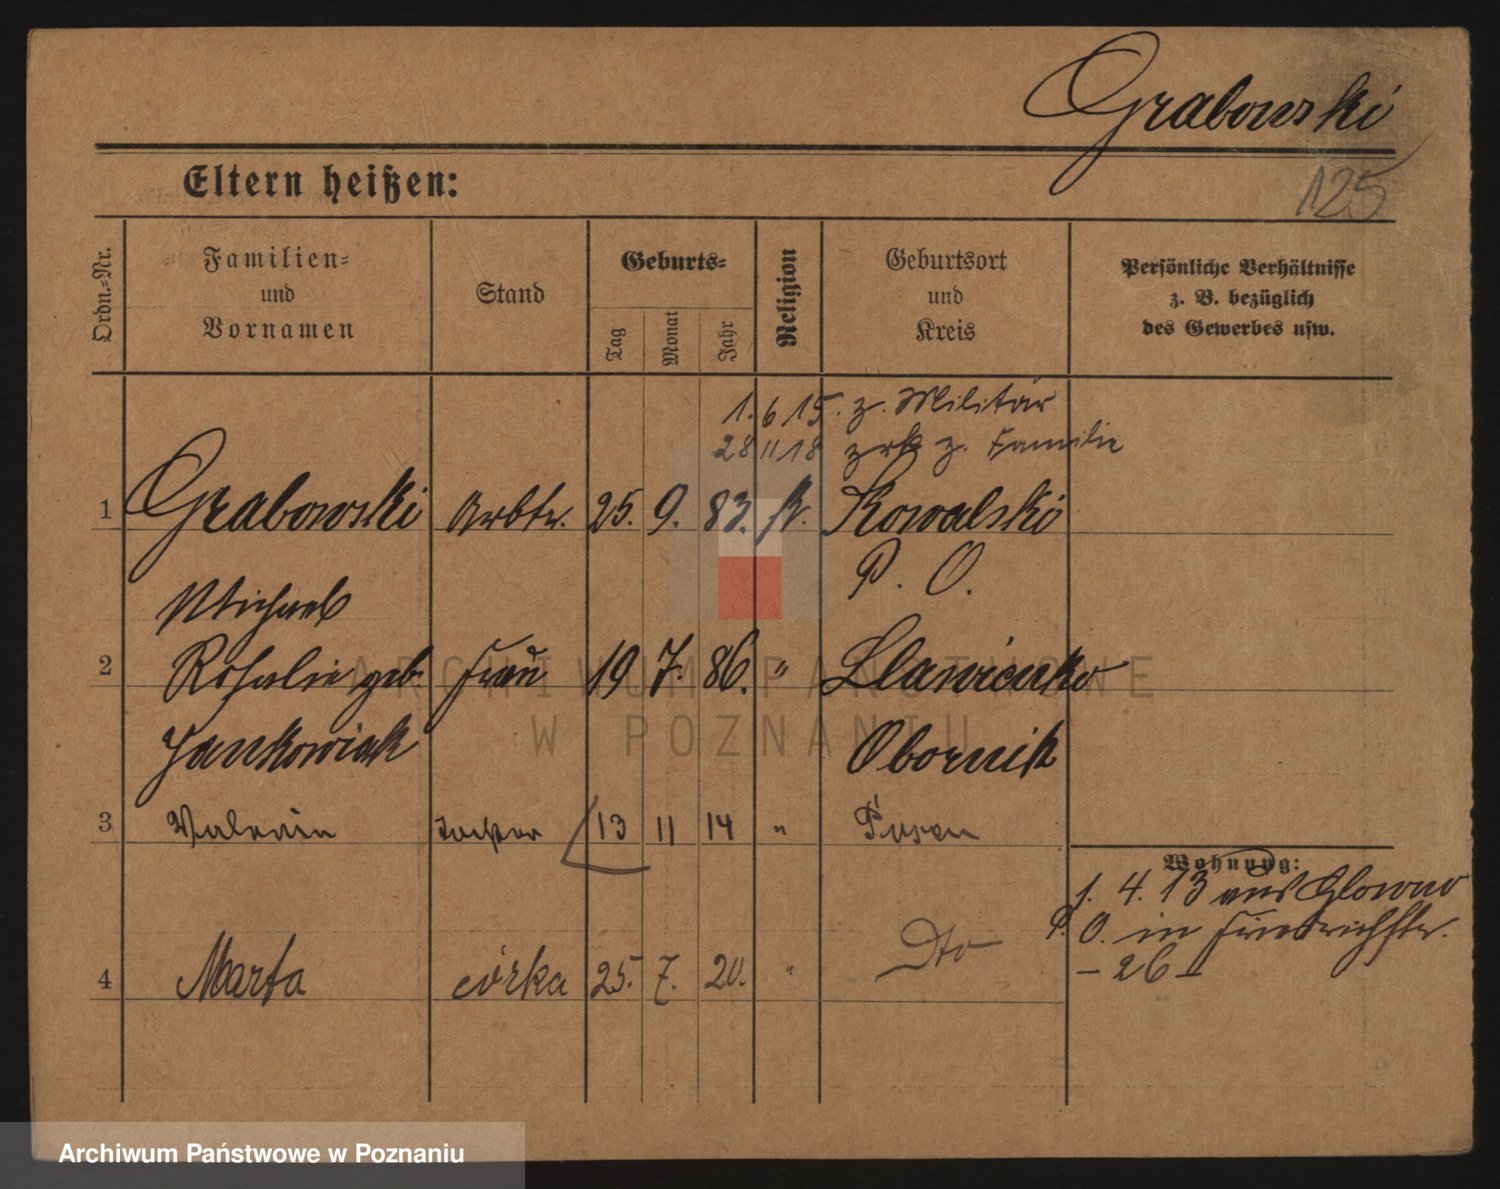 Grabowski
125
Eltern heißen:
Ordn.-Nr.
Familien-
und
Vornamen
Stand
Geburts-
Tag
Monat
Jahr
Religion
Geburtsort
und
Kreis
Persönliche Verhältnisse
z. B. bezüglich
des Gewerbes usw.
1. 6 15. z. Militär
28 11 18 zrk z. Familie
1 Grabowski Arbtr. 25. 9. 83. k. Kowalski
Michael P. O.
2 Rosalie geb. Frau 19 7. 86. " Slawienko
Jankowiak Obornik
3 Valerie Tochter 13 11 14 " Posen
Wohnung:
1. 4. 13 aus Glowno
P. O. in Friedrichstr.
- 26 -
4 Marta córka 25. 7. 20. " Dto
ARCHIWUM PAŃSTWOWE
W POZNANIU
Archiwum Państwowe w Poznaniu